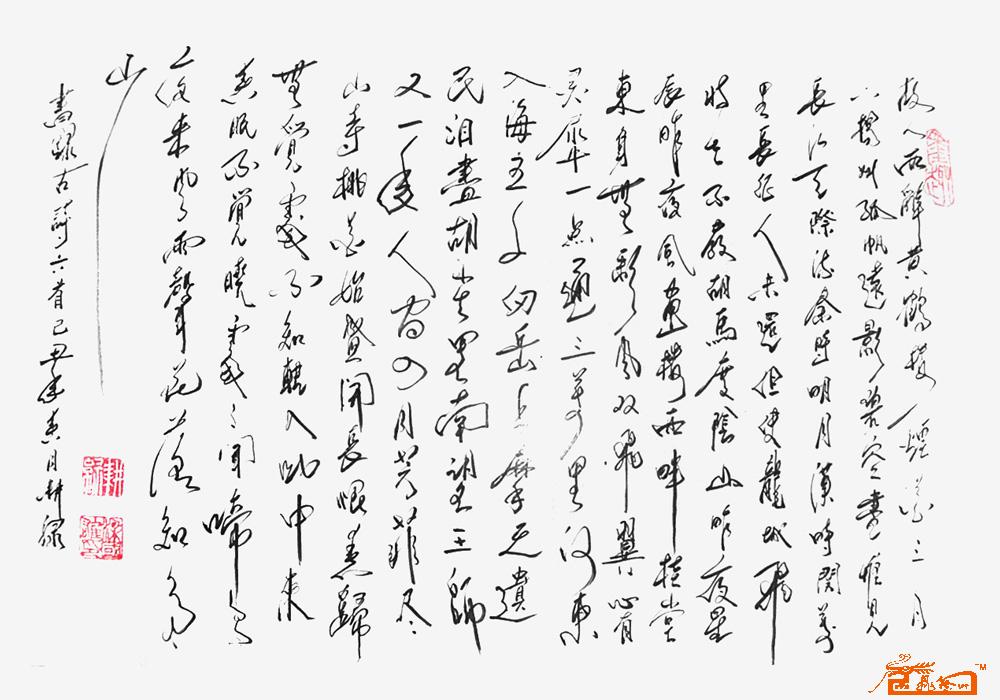 故人西辭黄鶴樓煙花三月
下揚州孤帆遠影碧空盡唯見
長江天際流秦時明月漢時関萬
里長征人未還但使龍城飛
將在不教胡馬度陰山昨夜星
辰昨夜風畫樓西畔桂堂
東身無彩鳳双飛翼心有
灵犀一点通三萬里河東
入海五千仞岳上摩天遺
民泪盡胡尘里南望王師
又一年人间四月芳菲尽
山寺桃花始盛開長恨春歸
無覓處不知轉入此中来
春眠不覺曉處處聞啼鸟
夜来风雨聲花落知多少
書録古詩六首己丑年春月耕緑